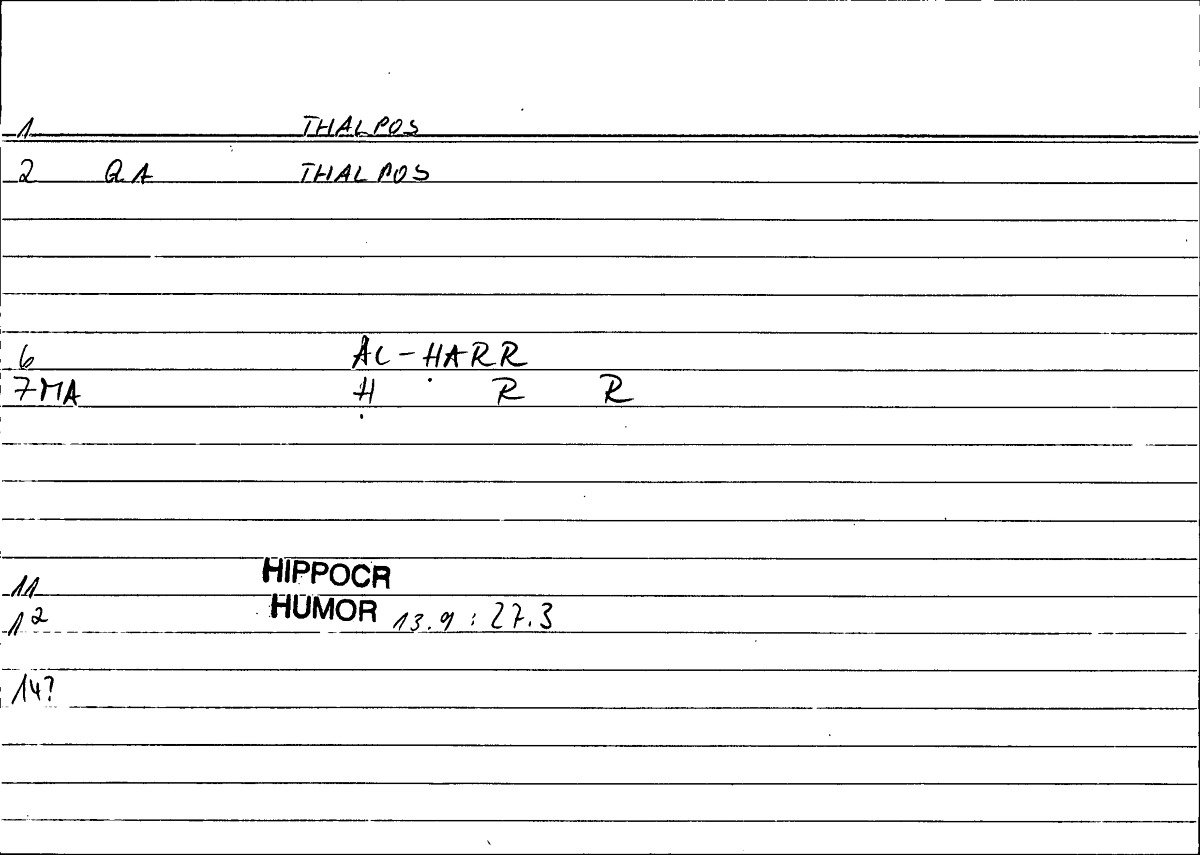 1 THALPOS
2 QA THALPOS
6 AL-ḤARR
7 MA Ḥ R R
11 HIPPOCR
12 HUMOR 13.9 : 27.3
14?